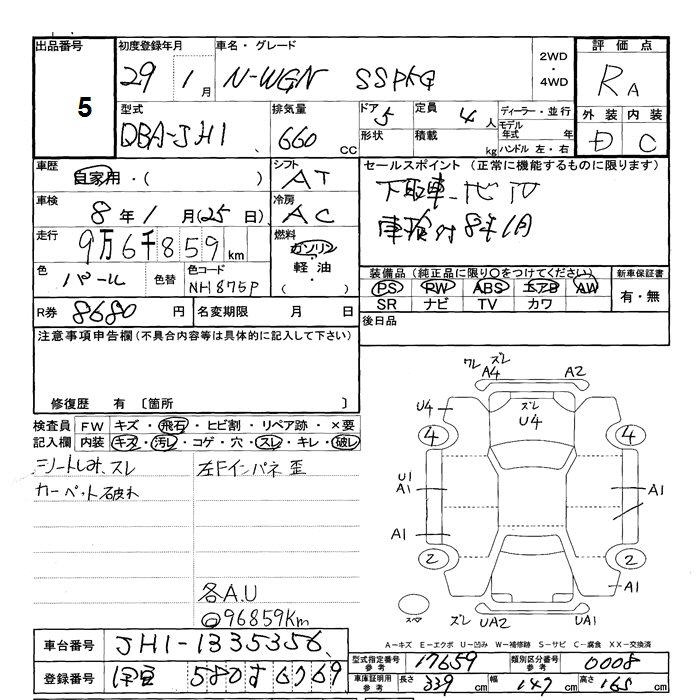 出品番号 5
初度登録年月 29 1月
車名・グレード N-WGN SSPKG
2WD・4WD
評価点 RA
型式 DBA-JH1
排気量 660 CC
ドア 5 形状
定員 4人 積載 kg
ディーラー・並行
モデル年式 年
ハンドル 左・右
外装 内装
D C
車歴 自家用・( )
シフト AT
セールスポイント(正常に機能するものに限ります)
下取車
車検付8年1月
車検 8年1月(25日)
冷房 AC
走行 9万6千859km
燃料 ガソリン・軽油・( )
色 パール 色替
色コード NH875P
装備品(純正品に限り○をつけてください) 新車保証書
PS RW ABS エアB AW 有・無
SR ナビ TV カワ
R券 8680円 名変期限 月 日
後日品
注意事項申告欄(不具合内容等は具体的に記入して下さい)
修復歴 有 〔箇所 〕
検査員 FW キズ・飛石・ヒビ割・リペア跡・×要
記入欄 内装 キズ・汚レ・コゲ・穴・スレ・キレ・破レ
シートしみ、スレ 左Fインパネ歪
カーペット破れ
各A.U
@96859Km
ワレ ズレ
A4 A2
U4 ズレ U4
4 4
U1
A1 A1
A1
2 2
A1
スペア ズレ UA2 UA1
A-キズ E-エクボ U-凹み W-補修跡 S-サビ C-腐食 XX-交換済
車台番号 JH1-1335356
型式指定番号 参考 17659 類別区分番号 参考 0008
登録番号 伊豆 580 す 6769
車庫証明用 参考 長さ 339cm 幅 147cm 高さ 165cm